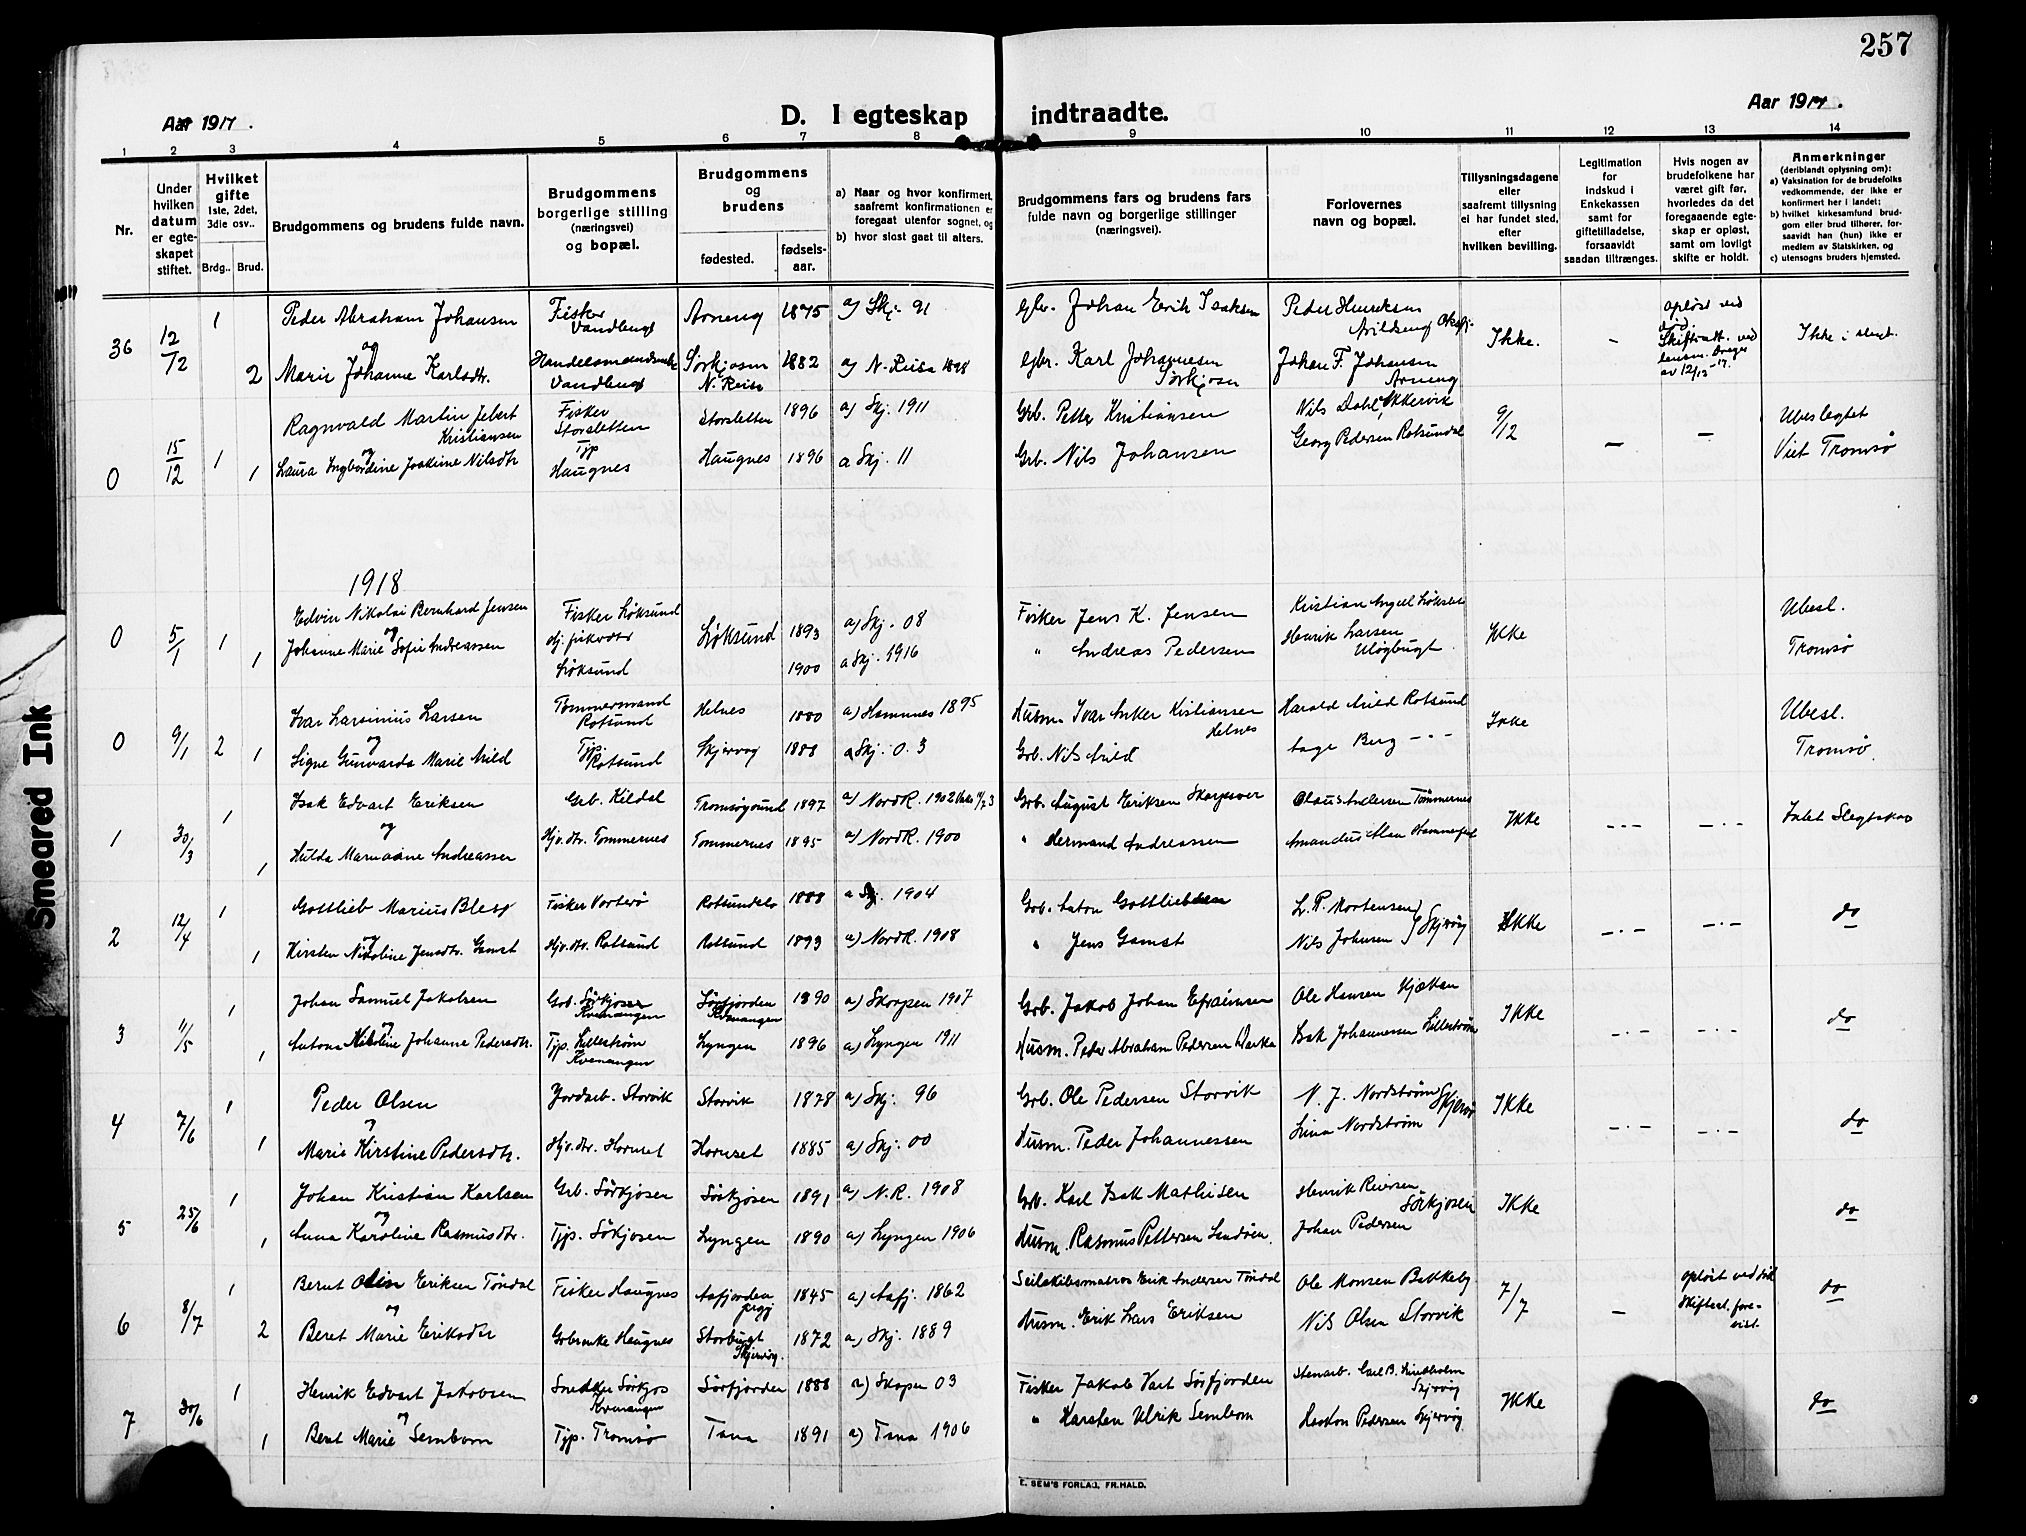 257
Aar 1917.
D. I egteskap indtraadte.
Aar 1917.
1 2 3 4 5 6 7 8 9 10 11 12 13 14
Nr.
Under hvilken datum er egteskapet stiftet.
Hvilket gifte
1ste, 2det, 3die osv..
Brdg.. Brud.
Brudgommens og brudens fulde navn.
Brudgommens borgerlige stilling (næringsvei) og bopæl.
Brudgommens og brudens
fødested.
fødsels-aar.
a) Naar og hvor konfirmert, saafremt konfirmationen er foregaat utenfor sognet, og
b) hvor sidst gaat til alters.
Brudgommens fars og brudens fars fulde navn og borgerlige stillinger (næringsvei).
Forlovernes navn og bopæl.
Tillysningsdagene eller saafremt tillysning ei har fundet sted, efter hvilken bevilling.
Legitimation for indskud i Enkekassen samt for giftetilladelse, forsaavidt saadan tiltrænges.
Hvis nogen av brudefolkene har været gift før, hvorledes da det foregaaende egteskap er opløst, samt om lovligt skifte er holdt.
Anmerkninger
(deriblandt oplysning om):
a) Vaksination for de brudefolks vedkommende, der ikke er konfirmert her i landet;
b) hvilket kirkesamfund brudgom eller brud tilhører, forsaavidt han (hun) ikke er medlem av Statskirken, og
c) utensogns bruders hjemsted.
36 12/12 1 Peder Abraham Johansen Fisker Vandbugt Arneng 1875 a) Skj. 91 Gbr. Johan Erik Isaksen Peder Henriksen Ikke. - opløst ved død
og
2 Marie Johanne Karlsdtr. Vandbugt Sørkjosen N. Reisa 1882 a) N. Reisa 1898 Gbr. Karl Johannesen Sørkjosen Johan F. Johansen Arneng
0 15/12 1 Ragnvald Martin Jebert Kristiansen Fisker Storsletten Storsletten 1896 a) Skj. 1911 Grb. Petter Kristiansen Nils Dahl, Akkervik 9/12 - - Ubeslegtet
og
1 Laura Ingbordine Joakime Nilsdtr Typ Haugnes Haugnes 1896 a Skj. 11 Grb. Nils Johansen Georg Pedersen Rotsundal Viet Tromsø
1918
0 5/1 1 Edvin Nikolai Bernhard Jensen Fisker Løksund Løksund 1893 a) Skj. 08 Fisker Jens K. Jensen Ikke Ubesl.
og
1 Johanne Marie Sofie Andreassen Løksund 1900 a Skj. 1916 " Andreas Pedersen Henrik Larsen Uløybugt Tromsø
0 9/1 2 Ivar Larsinius Larsen Tømmermand Rotsund Helnes 1880 a) Hamnes 1895 Husm. Ivar Anker Kistiansen Helnes Harald Arild Rotsund Ikke Ubesl.
og
1 Signe Gunvarda Marie Arild Typ. Rotsund Skjervøy 1888 a Skj. 0.3 Grb. Nils Arild Aage Berg - " - Tromsø
1 30/3 1 Isak Edvart Eriksen Grb. Kildal Tromsøysund 1897 a) Nord R. 1902 Grb. August Eriksen Skorpover Claus Andersen Tømmernes Ikke -.- -.- Intet Slegtskap
og
1 Hulda Marnadine Andreassen Hjv. dtr. Tommernes Tommernes 1895 a) Nord R. 1900 " Hermand Andreassen Amandus Hammerfest
2 12/4 1 Gottlieb Marius Blesy Fisker Vorterø Rotsundelv 1888 a Skj. 1904 Grb. Anton Gottliebsen L. P. Mortensen Ikke -.- -.- do
og
1 Kirsten Nikoline Jensdtr. Gamst Hjv. dtr. Rotsund Rotsund 1893 a) Nord R. 1908 " Jens Gamst Nils Johnsen Skjervøy
3 11/5 1 Johan Samuel Jakobsen Grb. Sørkjosen Kvenangen Sørfjorden Kvenangen 1890 a) Skorpen 1907 Grb. Jakob Johan Efraimsen Ole Hansen Kjækan Ikke -.- -.- do
og
1 Antona Nikoline Johanne Pedersdtr. Typ. Lillestrøm Kvenangen Lyngen 1896 a) Lyngen 1911 Husm. Peder Abraham Pedersen Isak Johannessen Lillestrøm
4 7/6 1 Peder Olsen Jordarb. Storvik Storvik 1878 a) Skj. 96 Grb. Ole Pedersen Storvik N. J. Nordstrøm Skjervøy Ikke -.- -.- do
og
1 Marie Kirstine Pedersdtr. Hjv. dtr. Hornset Hornset 1885 a) Skj. 00 Husm. Peder Johannessen Lina Nordstrøm
5 25/6 1 Johan Kristian Karlsen Grb. Sørkjosen Sørkjosen 1891 a) N. R. 1908 Grb. Karl Isak Mathisen Henrik Reiersen Sørkjosen Ikke do
og
1 Anna Karoline Rasmusdtr. Typ. Sörkjosen Lyngen 1890 a) Lyngen 1906 Husm. Rasmus Pettersen Johan Pedersen
6 8/7 1 Bernt Olin Eriksen Töndal Fisker Haugnes Aafjorden 1845 a) Aafj. 1862 Seilskibsmatros Erik Andersen Töndal Ole Monsen Bakkeby 7/7 - opløst ved død do
og
2 Beret Marie Eriksdtr Gbrenke Haugnes Storbugt Skjervøy. 1872 a) Skj. 1889 Husm. Erik Lars Eriksen Nils Olsen Storvik Skifteat. forevist.
7 30/6 1 Henrik Edvart Jakobsen Snedker Sørkjos Kvenangen Sörfjorden 1888 a) Skorpen 03 Fisker Jakob Sörfjorden Stenarb. Carl B. Lindholm Skjervøy Ikke do
og
1 Berit Marie Sembom Typ. Tromsø Tana 1891 a) Tana 1906 " Karsten Ulrik Sembom Haakon Pedersen Skjervöy.
E. SEM'S FORLAG, FR.HALD.
Smeared Ink